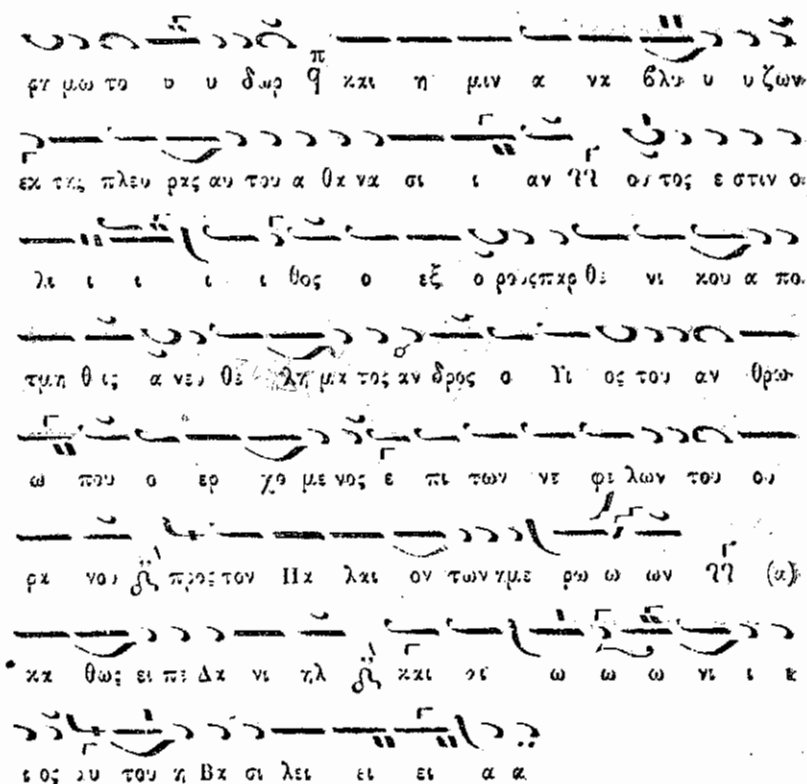 ερ μω το υ υ δωρ π ϥ και η μιν α να βλυ υ υ ζων
εκ της πλευ ρας αυ του α θα να σι ι αν ου τος ε στιν ο
λι ι ι ι ι θος ο εξ ο ρους παρ θε νι κου α πο
τμη θεις α νευ θε λη μα τος αν δρος ο Υι ος του αν θρω
ω που ο ερ χο με νος ε πι των νε φε λων του ου
ρα νου προς τον Πα λαι ον των ημε ρω ω ων (α)
κα θως ει πε Δα νι ηλ και αι ω ω ω νι ι
ι ος αυ του η Βα σι λει ει ει α α